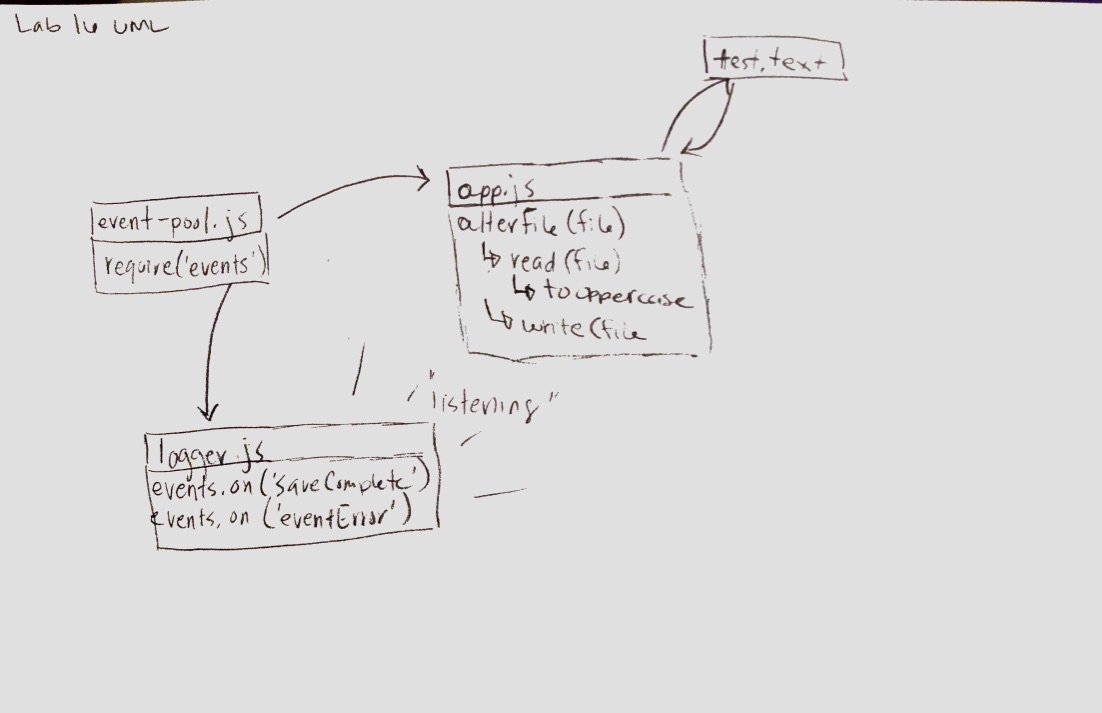 Lab 16 UML
test.text
event-pool.js
require('events')
app.js
alterFile(file)
read(file)
touppercase
write(file
"listening"
logger.js
events.on('saveComplete')
events.on('eventError')